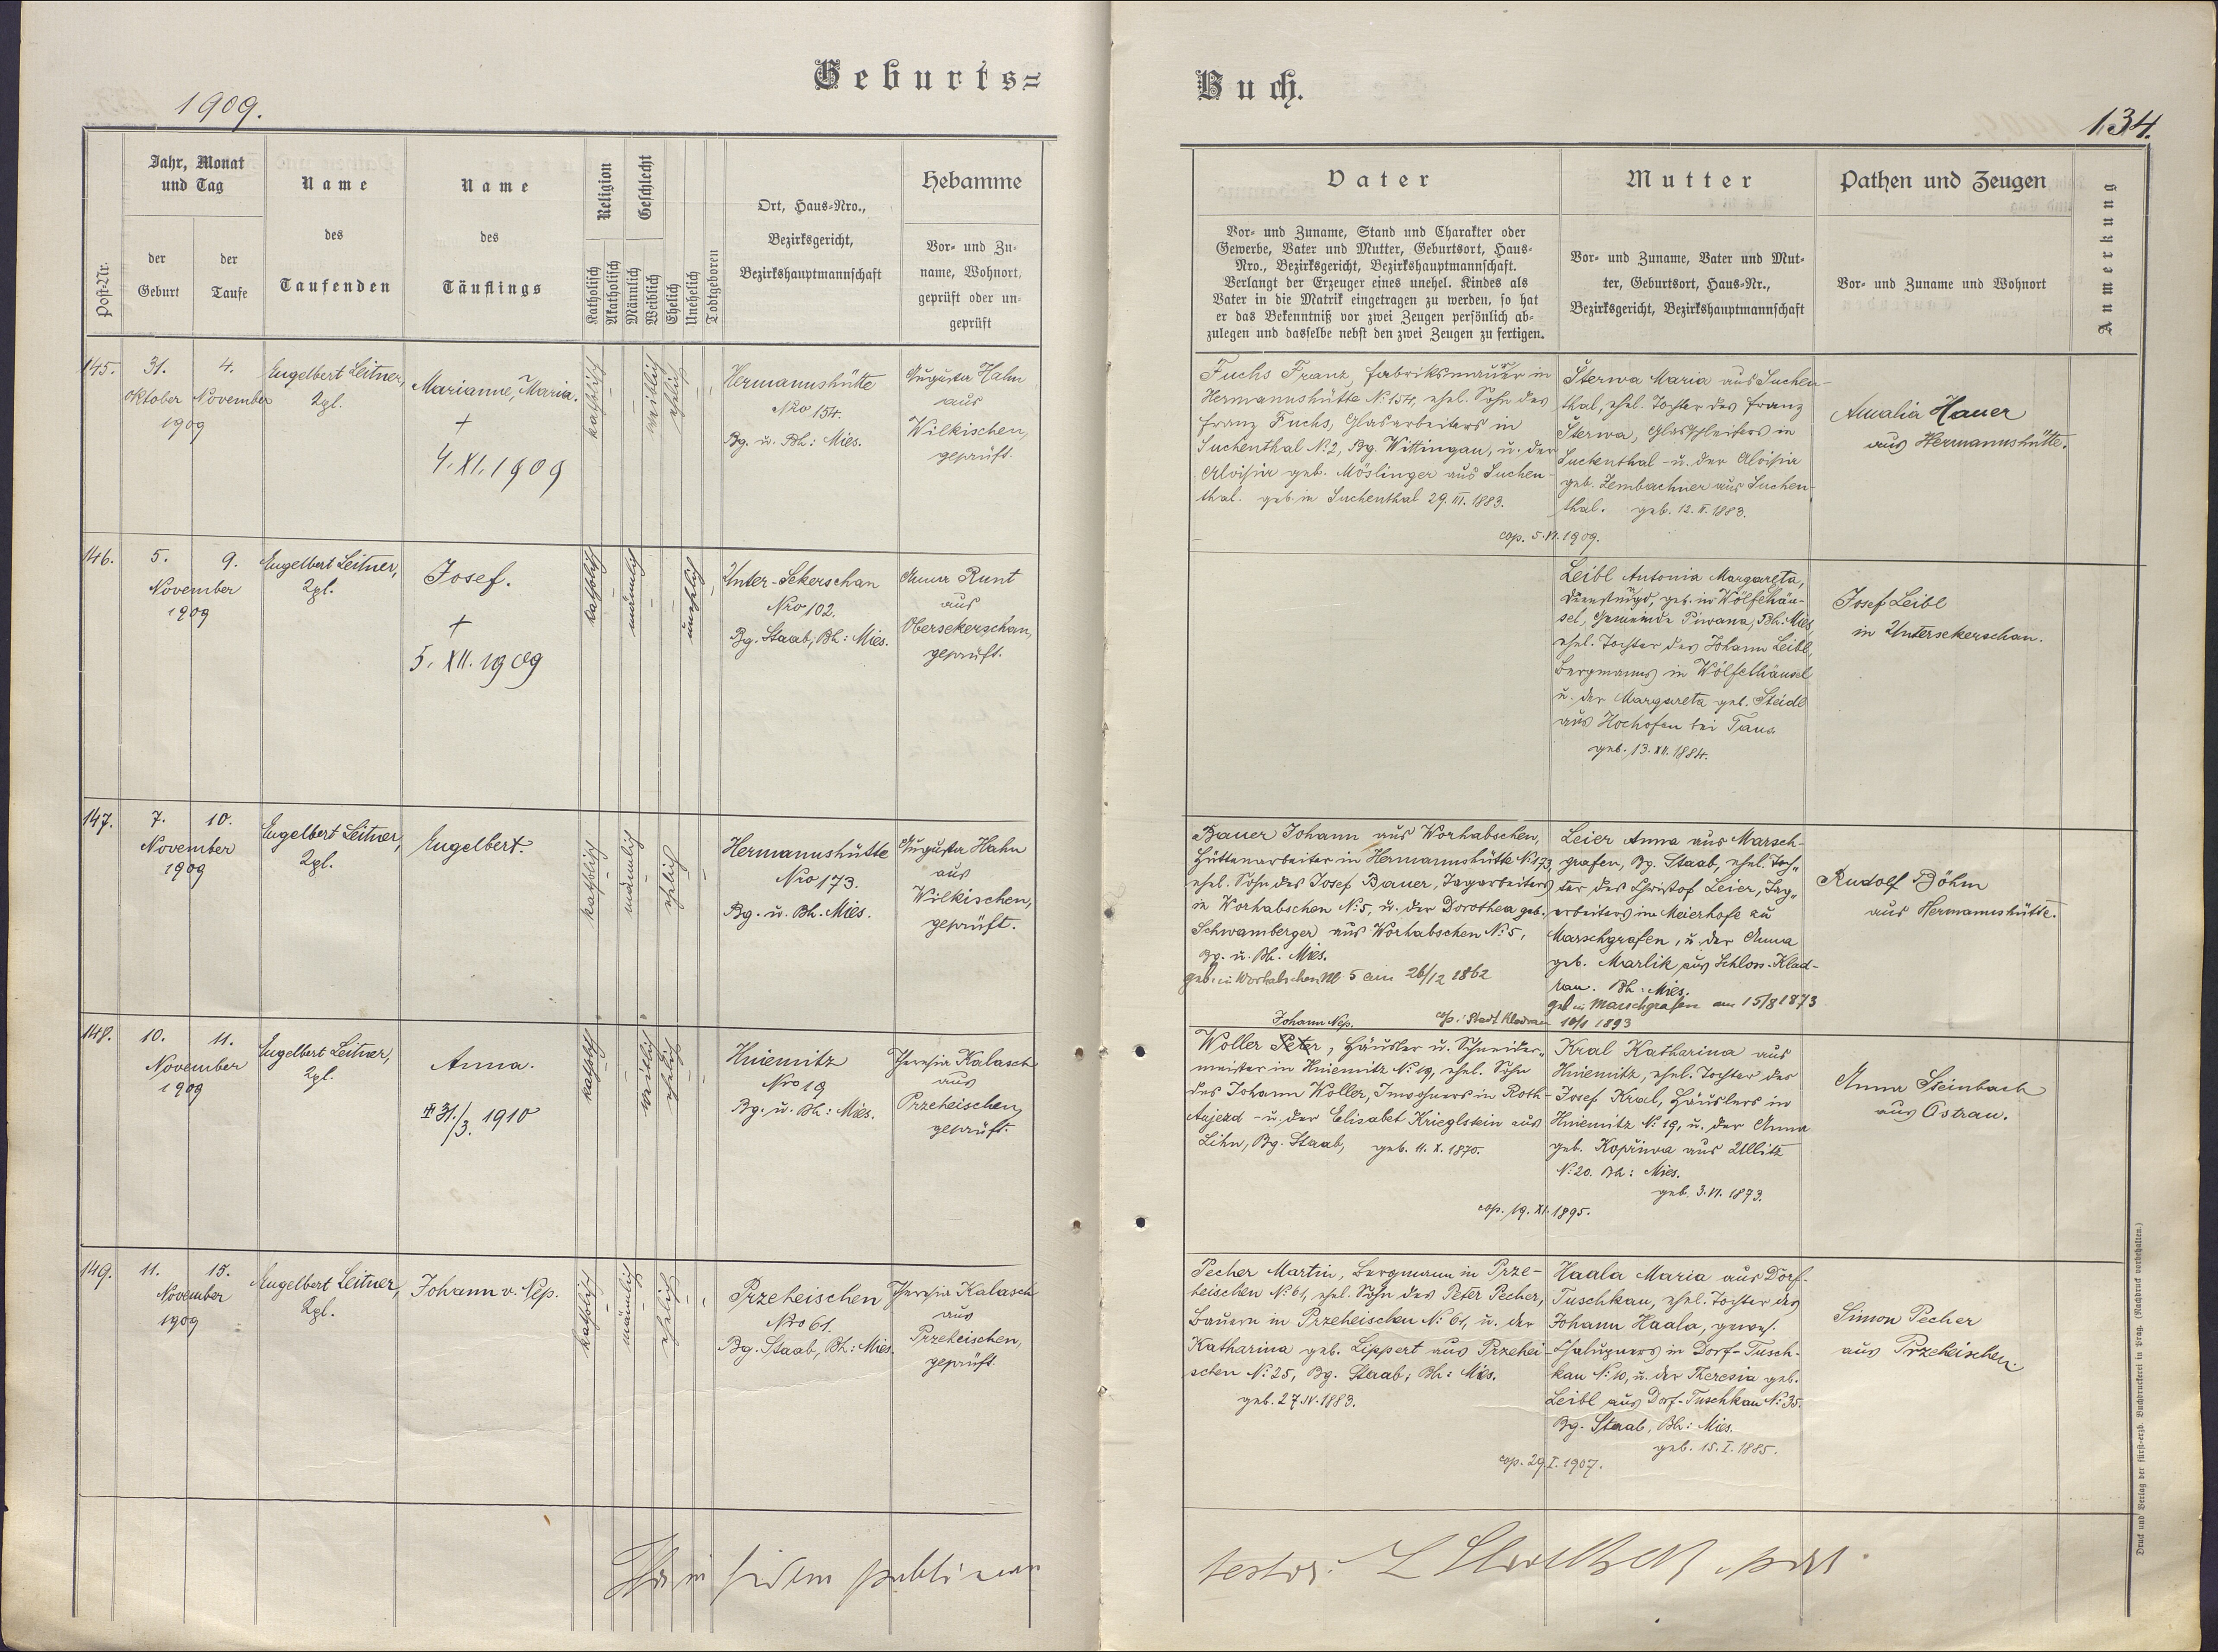 Geburts=
Buch.
1909.
134.
Post-Nr.
Jahr, Monat
und Tag
der
Geburt
der
Taufe
Name
des
Taufenden
Name
des
Täuflings
Religion
Katholisch
Akatholisch
Geschlecht
Männlich
Weiblich
Ehelich
Unehelich
Todtgeboren
Ort, Haus-Nro.,
Bezirksgericht,
Bezirkshauptmannschaft
Hebamme
Vor- und Zu-
name, Wohnort,
geprüft oder un-
geprüft
Vater
Vor- und Zuname, Stand und Charakter oder
Gewerbe, Vater und Mutter, Geburtsort, Haus-
Nro., Bezirksgericht, Bezirkshauptmannschaft.
Verlangt der Erzeuger eines unehel. Kindes als
Vater in die Matrik eingetragen zu werden, so hat
er das Bekenntniß vor zwei Zeugen persönlich ab-
zulegen und dasselbe nebst den zwei Zeugen zu fertigen.
Mutter
Vor- und Zuname, Vater und Mut-
ter, Geburtsort, Haus-Nr.,
Bezirksgericht, Bezirkshauptmannschaft
Pathen und Zeugen
Vor- und Zuname und Wohnort
Anmerkung
145.
31.
Oktober
4.
November
1909
Engelbert Leitner,
Marianne, Maria.
+
4. XI. 1909
katholisch
weiblich
ehelich
Hermannshütte
Nro 154.
Bg. u. Bh: Mies.
Augusta Hahn
aus
Wilkischen,
geprüft.
Fuchs Franz, Fabriksmaurer in
Hermannshütte N: 154, ehel. Sohn des
Franz Fuchs, Glasarbeiters in
Suchenthal N: 2, Bg. Wittingau, u. der
Aloisia geb. Möslinger aus Suchen-
thal. geb. in Suchenthal 29. III. 1883.
Sterwa Maria aus Suchen-
thal, ehel. Tochter des Franz
Sterwa, Glasschleifers in
Suchenthal - u. der Aloisia
geb. Zembachner aus Suchen-
thal. geb. 12. II. 1883.
cop. 5. VI. 1909.
Amalia Hauer
aus Hermannshütte.
146.
5.
9.
November
1909
Engelbert Leitner,
Josef.
+
5. XII. 1909
katholisch
männlich
unehelich
Unter-Sekerschan
Nro 102.
Bg. Staab, Bh: Mies.
Anna Runt
aus
Obersekerschan,
geprüft.
Leibl Antonia Margareta,
Dienstmagd, geb. in Wölfelhäu-
sel, Gemeinde Piwana, Bh: Mies
ehel. Tochter des Johann Leibl,
Bergmanns in Wölfelhäusel
u. der Margareta geb. Steidl
aus Hochofen bei Taus
geb. 13. XII. 1884.
Josef Leibl
in Untersekerschan.
147.
7.
10.
November
1909
Engelbert Leitner,
Engelbert.
katholisch
männlich
ehelich
Hermannshütte
Nro 173.
Bg. u. Bh. Mies.
Augusta Hahn
aus
Wilkischen,
geprüft.
Bauer Johann aus Worhabschen,
Hüttenarbeiter in Hermannshütte N: 173,
ehel. Sohn des Josef Bauer, Tagarbeiters
in Worhabschen N: 5, u. der Dorothea geb.
Schwamberger aus Worhabschen N: 5,
Bg. u. Bh. Mies.
geb. in Worhabschen N 5 am 26/12 1862
Leier Anna aus Marsch-
grafen, Bg. Staab, ehel. Toch-
ter des Christof Leier, Tag-
arbeiters im Meierhofe zu
Marschgrafen, u. der Anna
geb. Marlik aus Schloss-Klad-
rau. Bh: Mies.
geb in Marschgrafen am 15/8 1873
cop: Stadt Kladrau 10/1 1893
Rudolf Böhm
aus Hermannshütte.
148.
10.
11.
November
1909
Engelbert Leitner,
Anna.
31./3. 1910
katholisch
weiblich
ehelich
Hniemitz
Nro 19
Bg. u. Bh: Mies.
Theresia Kalasch
aus
Przeheischen,
geprüft.
Johann Nep.
Woller Peter, Häusler u. Schneider-
meister in Hniemitz N: 19, ehel. Sohn
des Johann Woller, Inwohners in Roth-
Aujezd - u. der Elisabet Krieglstein aus
Lihn, Bg. Staab, geb. 11. X. 1870.
Kral Katharina aus
Hniemitz, ehel. Tochter des
Josef Kral, Häuslers in
Hniemitz N: 19, u. der Anna
geb. Kopřiwa aus Ullitz
N: 20. Bh: Mies.
geb. 3. VI. 1873.
cop. 19. XI. 1895.
Anna Steinbach
aus Ostrau.
149.
11.
15.
November
1909
Engelbert Leitner,
Johann v. Nep.
katholisch
männlich
ehelich
Przeheischen
Nro 61.
Bg. Staab, Bh: Mies.
Theresia Kalasch
aus
Przeheischen,
geprüft.
Pecher Martin, Bergmann in Prze-
heischen N: 61, ehel. Sohn des Peter Pecher,
Bauern in Przeheischen N: 61, u. der
Katharina geb. Lippert aus Przehei-
schen N: 25, Bg. Staab, Bh: Mies.
geb. 27. IV. 1883.
Haala Maria aus Dorf-
Tuschkau, ehel. Tochter des
Johann Haala, gewes.
Chalupners in Dorf-Tusch-
kau N: 10, u. der Theresia geb.
Leibl aus Dorf-Tuschkau N: 35.
Bg. Staab, Bh: Mies.
geb. 15. I. 1885.
cop. 29. I. 1907.
Simon Pecher
aus Przeheischen.
in fidem publicam
testor.
Druck und Verlag der fürst-erzb. Buchdruckerei in Prag. (Nachdruck vorbehalten.)